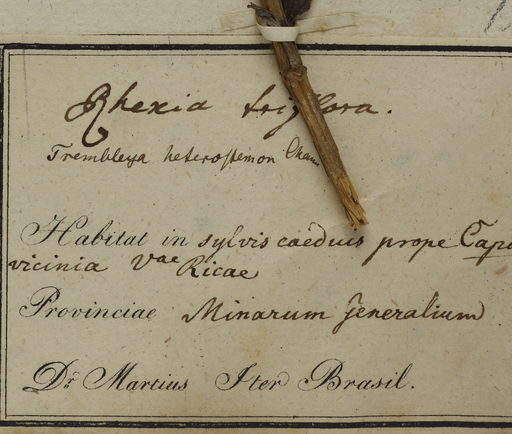 Rhexia triflora.
Trembleya heterostemon Cham
Habitat in sylvis caeduis prope Capo
vicinia Vae Ricae
Provinciae Minarum generalium
Dr. Martius Iter Brasil.